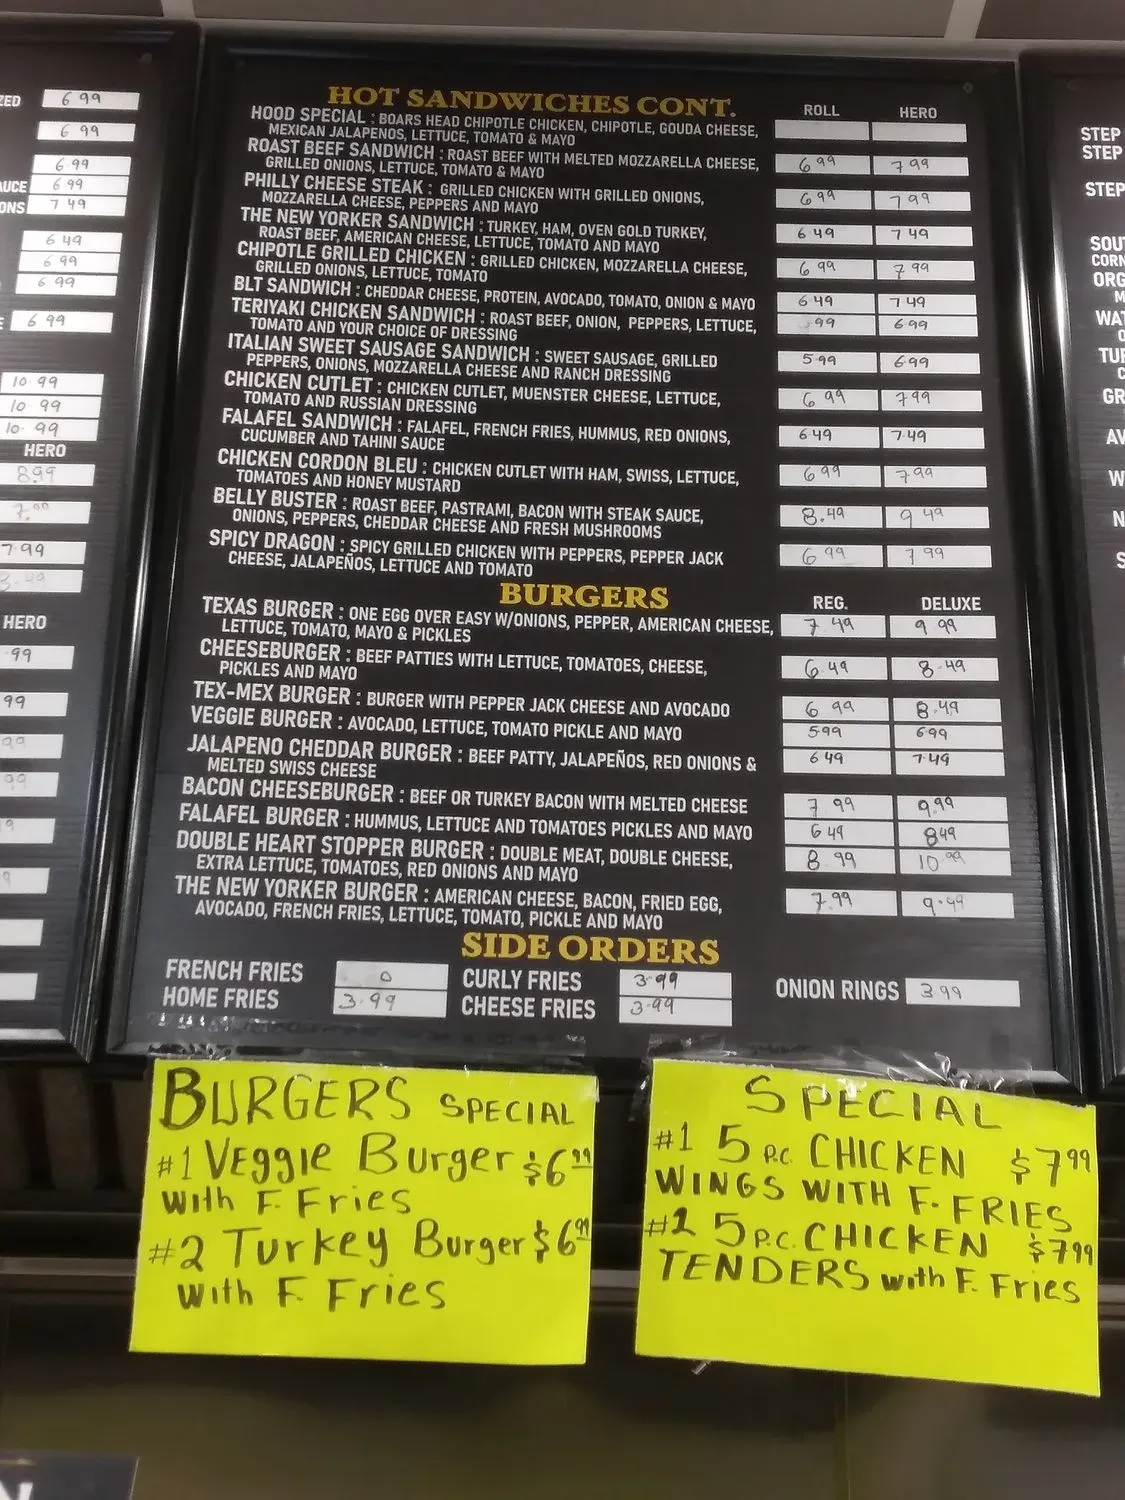 ZED 6 99
6 99
6 99
AUCE 6 99
ONS 7 49
6 49
6 99
6 99
E 6 99
10.99
10.99
10.99
HERO
8.99
7.00
7.99
HERO
.99
99
99
99
HOT SANDWICHES CONT. ROLL HERO
HOOD SPECIAL : BOARS HEAD CHIPOTLE CHICKEN, CHIPOTLE, GOUDA CHEESE,
MEXICAN JALAPENOS, LETTUCE, TOMATO & MAYO
ROAST BEEF SANDWICH : ROAST BEEF WITH MELTED MOZZARELLA CHEESE, 6 99 7 99
GRILLED ONIONS, LETTUCE, TOMATO & MAYO
PHILLY CHEESE STEAK : GRILLED CHICKEN WITH GRILLED ONIONS, 6 99 7 99
MOZZARELLA CHEESE, PEPPERS AND MAYO
THE NEW YORKER SANDWICH : TURKEY, HAM, OVEN GOLD TURKEY, 6 49 7 49
ROAST BEEF, AMERICAN CHEESE, LETTUCE, TOMATO AND MAYO
CHIPOTLE GRILLED CHICKEN : GRILLED CHICKEN, MOZZARELLA CHEESE, 6 99 7 99
GRILLED ONIONS, LETTUCE, TOMATO
BLT SANDWICH : CHEDDAR CHEESE, PROTEIN, AVOCADO, TOMATO, ONION & MAYO 6 49 7 49
TERIYAKI CHICKEN SANDWICH : ROAST BEEF, ONION, PEPPERS, LETTUCE, .99 6.99
TOMATO AND YOUR CHOICE OF DRESSING
ITALIAN SWEET SAUSAGE SANDWICH : SWEET SAUSAGE, GRILLED 5.99 6.99
PEPPERS, ONIONS, MOZZARELLA CHEESE AND RANCH DRESSING
CHICKEN CUTLET : CHICKEN CUTLET, MUENSTER CHEESE, LETTUCE, 6 99 7 99
TOMATO AND RUSSIAN DRESSING
FALAFEL SANDWICH : FALAFEL, FRENCH FRIES, HUMMUS, RED ONIONS, 6.49 7.49
CUCUMBER AND TAHINI SAUCE
CHICKEN CORDON BLEU : CHICKEN CUTLET WITH HAM, SWISS, LETTUCE, 6 99 7 99
TOMATOES AND HONEY MUSTARD
BELLY BUSTER : ROAST BEEF, PASTRAMI, BACON WITH STEAK SAUCE, 8.49 9 49
ONIONS, PEPPERS, CHEDDAR CHEESE AND FRESH MUSHROOMS
SPICY DRAGON : SPICY GRILLED CHICKEN WITH PEPPERS, PEPPER JACK 6 99 7 99
CHEESE, JALAPEÑOS, LETTUCE AND TOMATO
BURGERS REG. DELUXE
TEXAS BURGER : ONE EGG OVER EASY W/ONIONS, PEPPER, AMERICAN CHEESE, 7 49 9 99
LETTUCE, TOMATO, MAYO & PICKLES
CHEESEBURGER : BEEF PATTIES WITH LETTUCE, TOMATOES, CHEESE, 6.49 8.49
PICKLES AND MAYO
TEX-MEX BURGER : BURGER WITH PEPPER JACK CHEESE AND AVOCADO 6 99 8.49
VEGGIE BURGER : AVOCADO, LETTUCE, TOMATO PICKLE AND MAYO 5.99 6.99
JALAPENO CHEDDAR BURGER : BEEF PATTY, JALAPEÑOS, RED ONIONS & 6 49 7.49
MELTED SWISS CHEESE
BACON CHEESEBURGER : BEEF OR TURKEY BACON WITH MELTED CHEESE 7.99 9.99
FALAFEL BURGER : HUMMUS, LETTUCE AND TOMATOES PICKLES AND MAYO 6 49 8 49
DOUBLE HEART STOPPER BURGER : DOUBLE MEAT, DOUBLE CHEESE, 8.99 10.99
EXTRA LETTUCE, TOMATOES, RED ONIONS AND MAYO
THE NEW YORKER BURGER : AMERICAN CHEESE, BACON, FRIED EGG, 7.99 9.49
AVOCADO, FRENCH FRIES, LETTUCE, TOMATO, PICKLE AND MAYO
SIDE ORDERS
FRENCH FRIES CURLY FRIES 3.99 ONION RINGS 3 99
HOME FRIES 3.99 CHEESE FRIES 3.99
STEP
STEP
STEP
SOU
CORN
ORG
M
WAT
TUR
C
GR
AV
W
N
S
BURGERS SPECIAL
#1 Veggie Burger $6 99
with F. Fries
#2 Turkey Burger $6 99
with F. Fries
SPECIAL
#1 5 P.C. CHICKEN $7 99
WINGS WITH F. FRIES
#2 5 P.C. CHICKEN $7 99
TENDERS with F. Fries